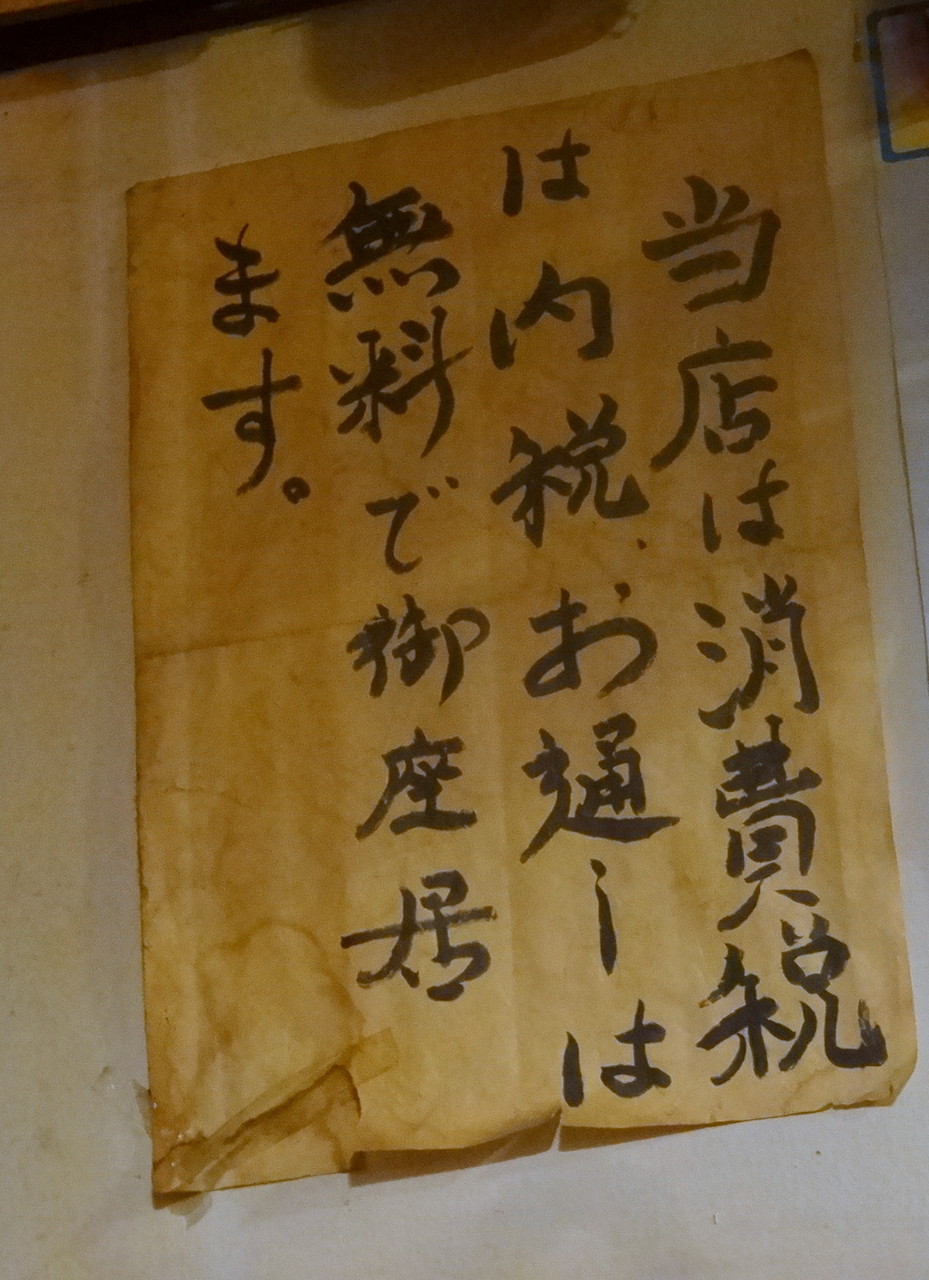 当店は消費税
は内税、お通しは
無料で御座居
ます。